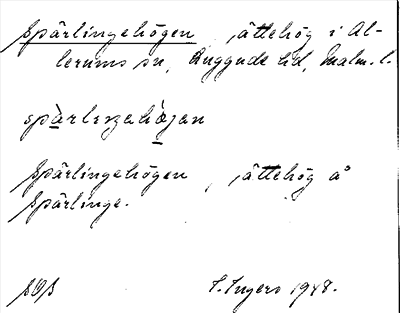 Spärlingehögen, ättehög i Al-
lerums sn, Luggude hd, Malm. l.
spàrlıŋahö̀jan
Spärlingehögen, ättehög å
Spärlinge.
I. Ingers 1948.